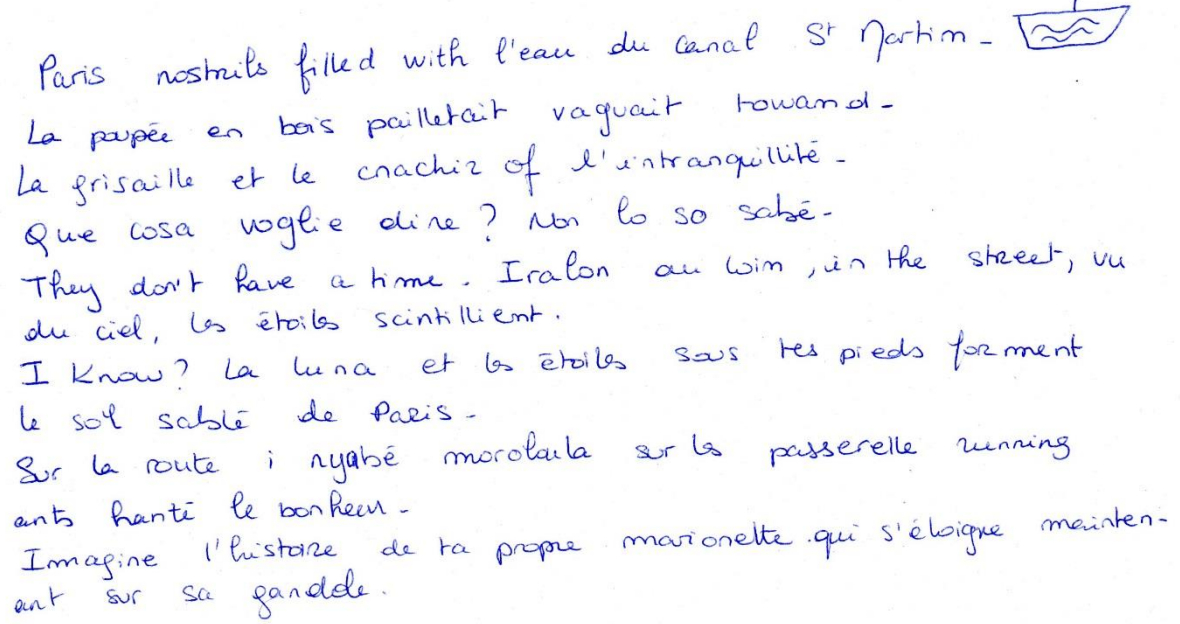 Paris nostrils filled with l'eau du canal St Martin -
La poupée en bois pailletait vaguait towand -
La grisaille et le cnachiz of l'intranquillité -
Que cosa voglie dire ? Non lo so sabé -
They don't have a time. Iralon au Wim, in the street, vu
du ciel, les étoiles scintillient.
I know? La luna et les étoiles sous tes pieds forment
le sol sablé de Paris -
Sur la route i nyabé morolaula sur les passerelle running
ants hanté le bonheur -
Imagine l'histoire de ta propre marionette qui s'éloigne mainten-
ant sur sa gandole.